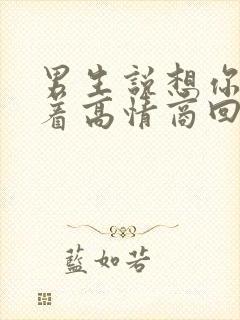 男生說想你
着高情商回
藍如若